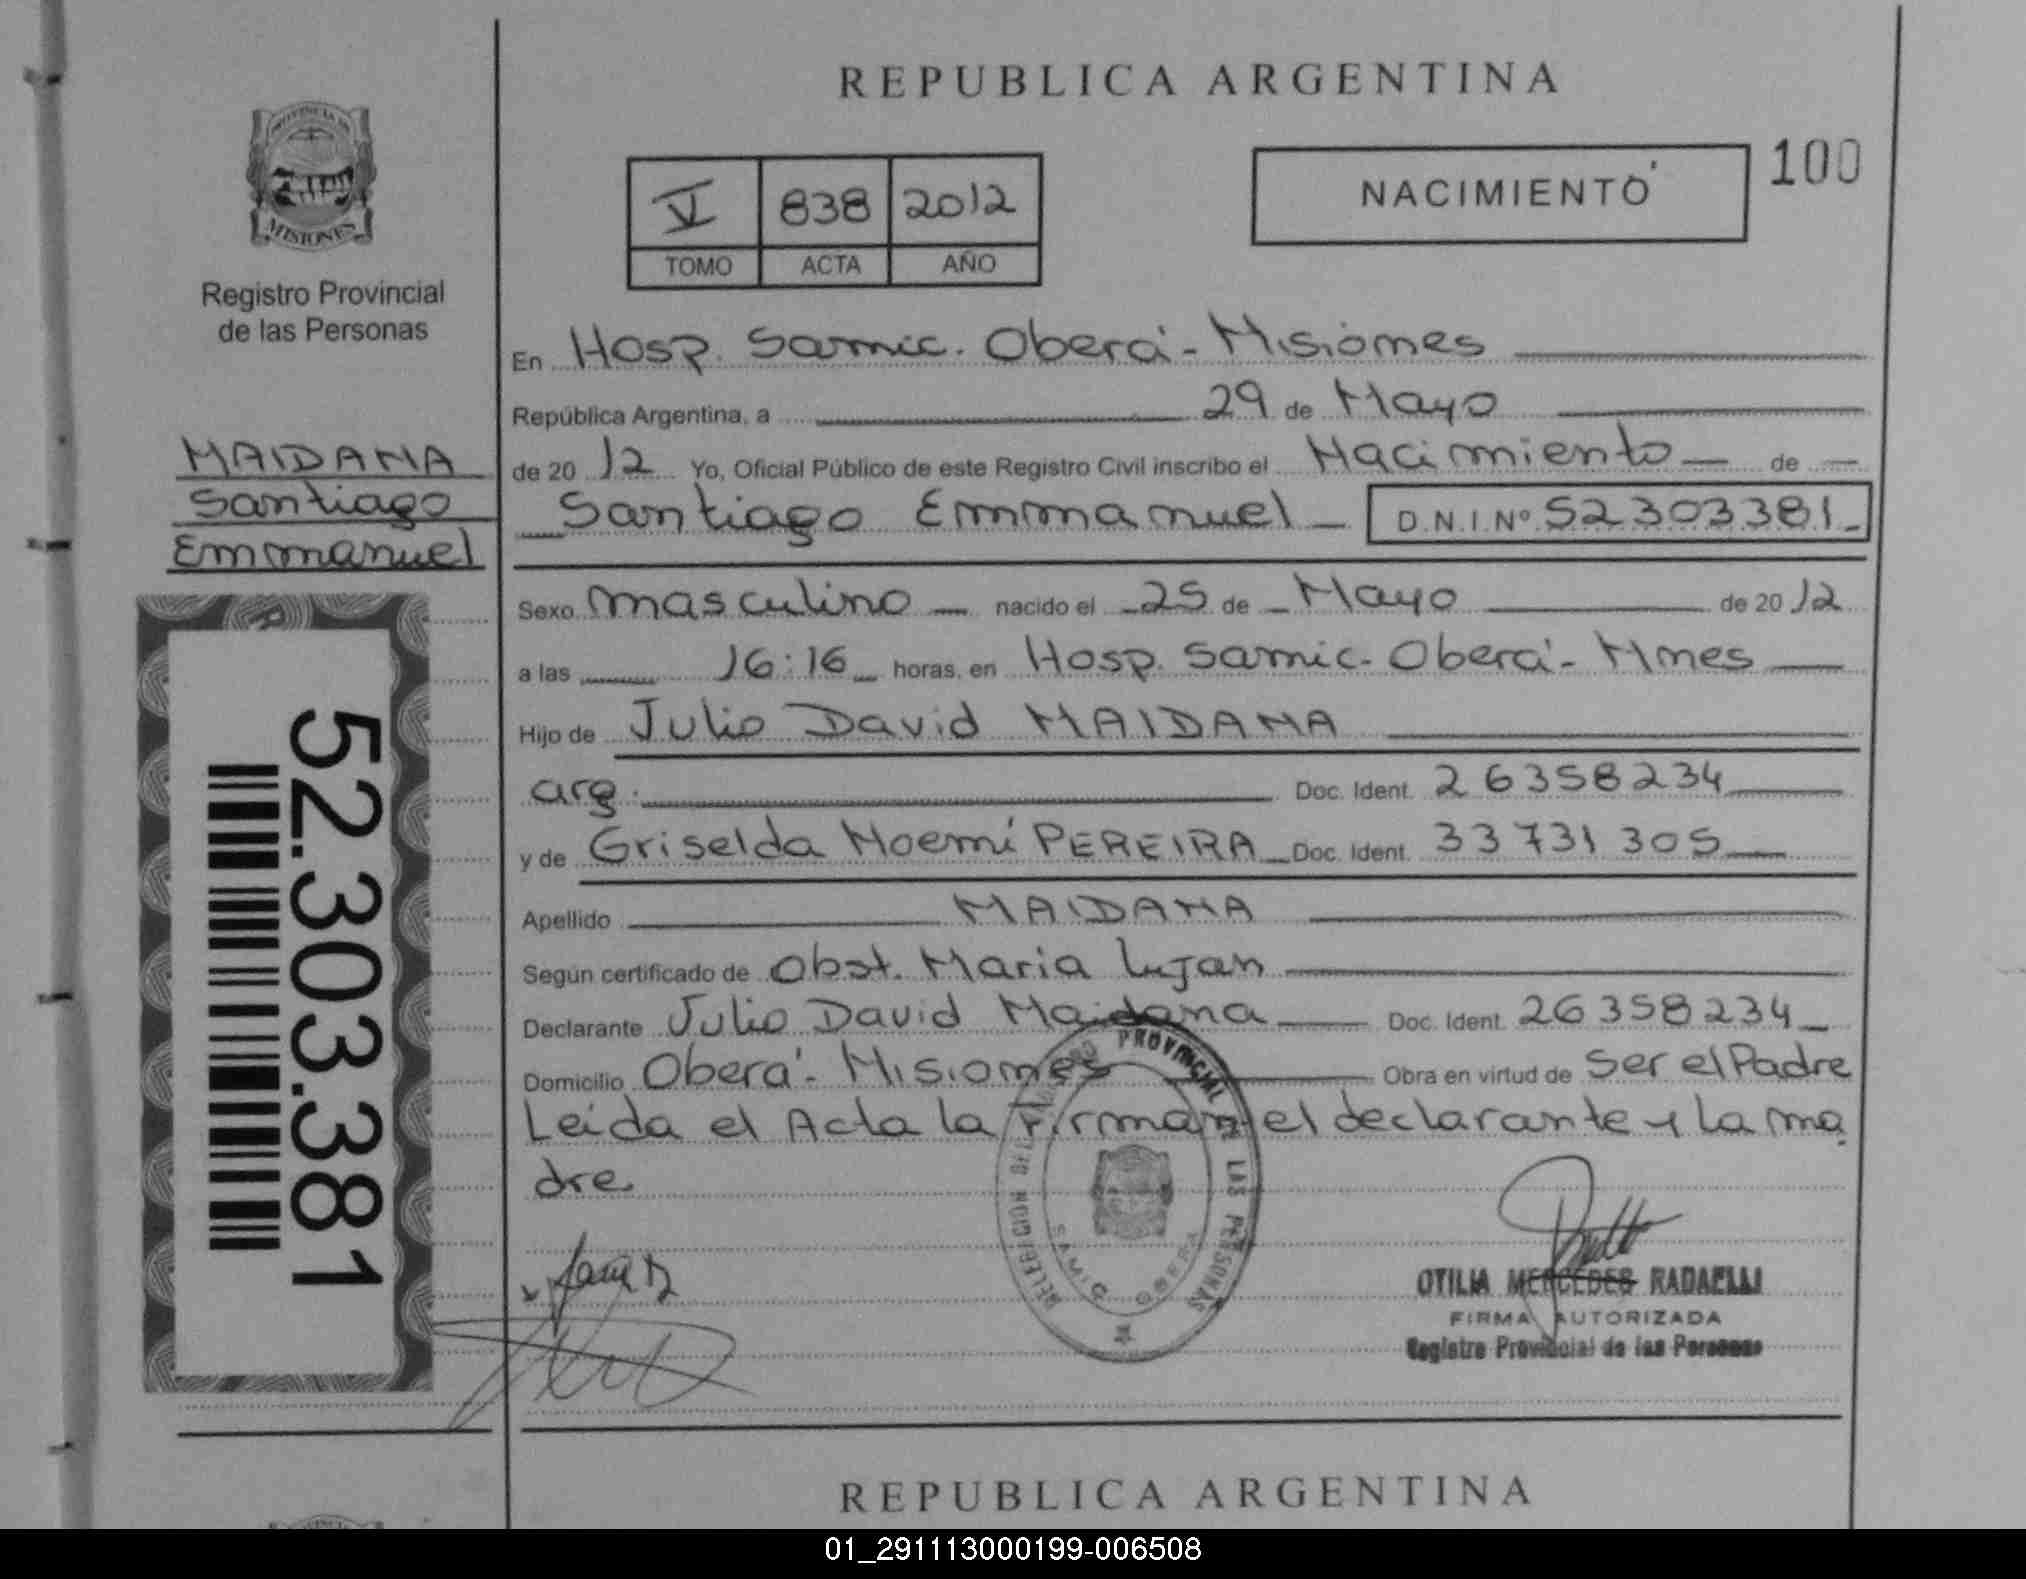 REPUBLICA ARGENTINA
PROVINCIA DE
MISIONES
Registro Provincial
de las Personas
V 838 2012
TOMO ACTA AÑO
NACIMIENTO
100
MAIDANA
Santiago
Emmanuel
52.303.381
En Hosp. Samic. Oberá - Misiones
República Argentina, a 29 de Mayo
de 20 12 Yo, Oficial Público de este Registro Civil inscribo el Nacimiento de
Santiago Emmanuel D.N.I Nº 52303381
Sexo masculino nacido el 25 de Mayo de 20 12
a las 16:16 horas, en Hosp. Samic. Oberá - Mnes
Hijo de Julio David MAIDANA
arg. Doc. Ident. 26358234
y de Griselda Noemí PEREIRA Doc. Ident. 33731305
Apellido MAIDANA
Según certificado de Obst. Maria Lujan
Declarante Julio David Maidana Doc. Ident. 26358234
Domicilio Oberá - Misiones Obra en virtud de Ser el Padre
Leida el Acta la Firman el declarante y la ma
dre.
DELEGACION DEL REGISTRO PROVINCIAL DE LAS PERSONAS
SAMIC OBERA
OTILIA MERCEDES RADAELLI
FIRMA AUTORIZADA
Registro Provincial de las Personas
REPUBLICA ARGENTINA
01_291113000199-006508